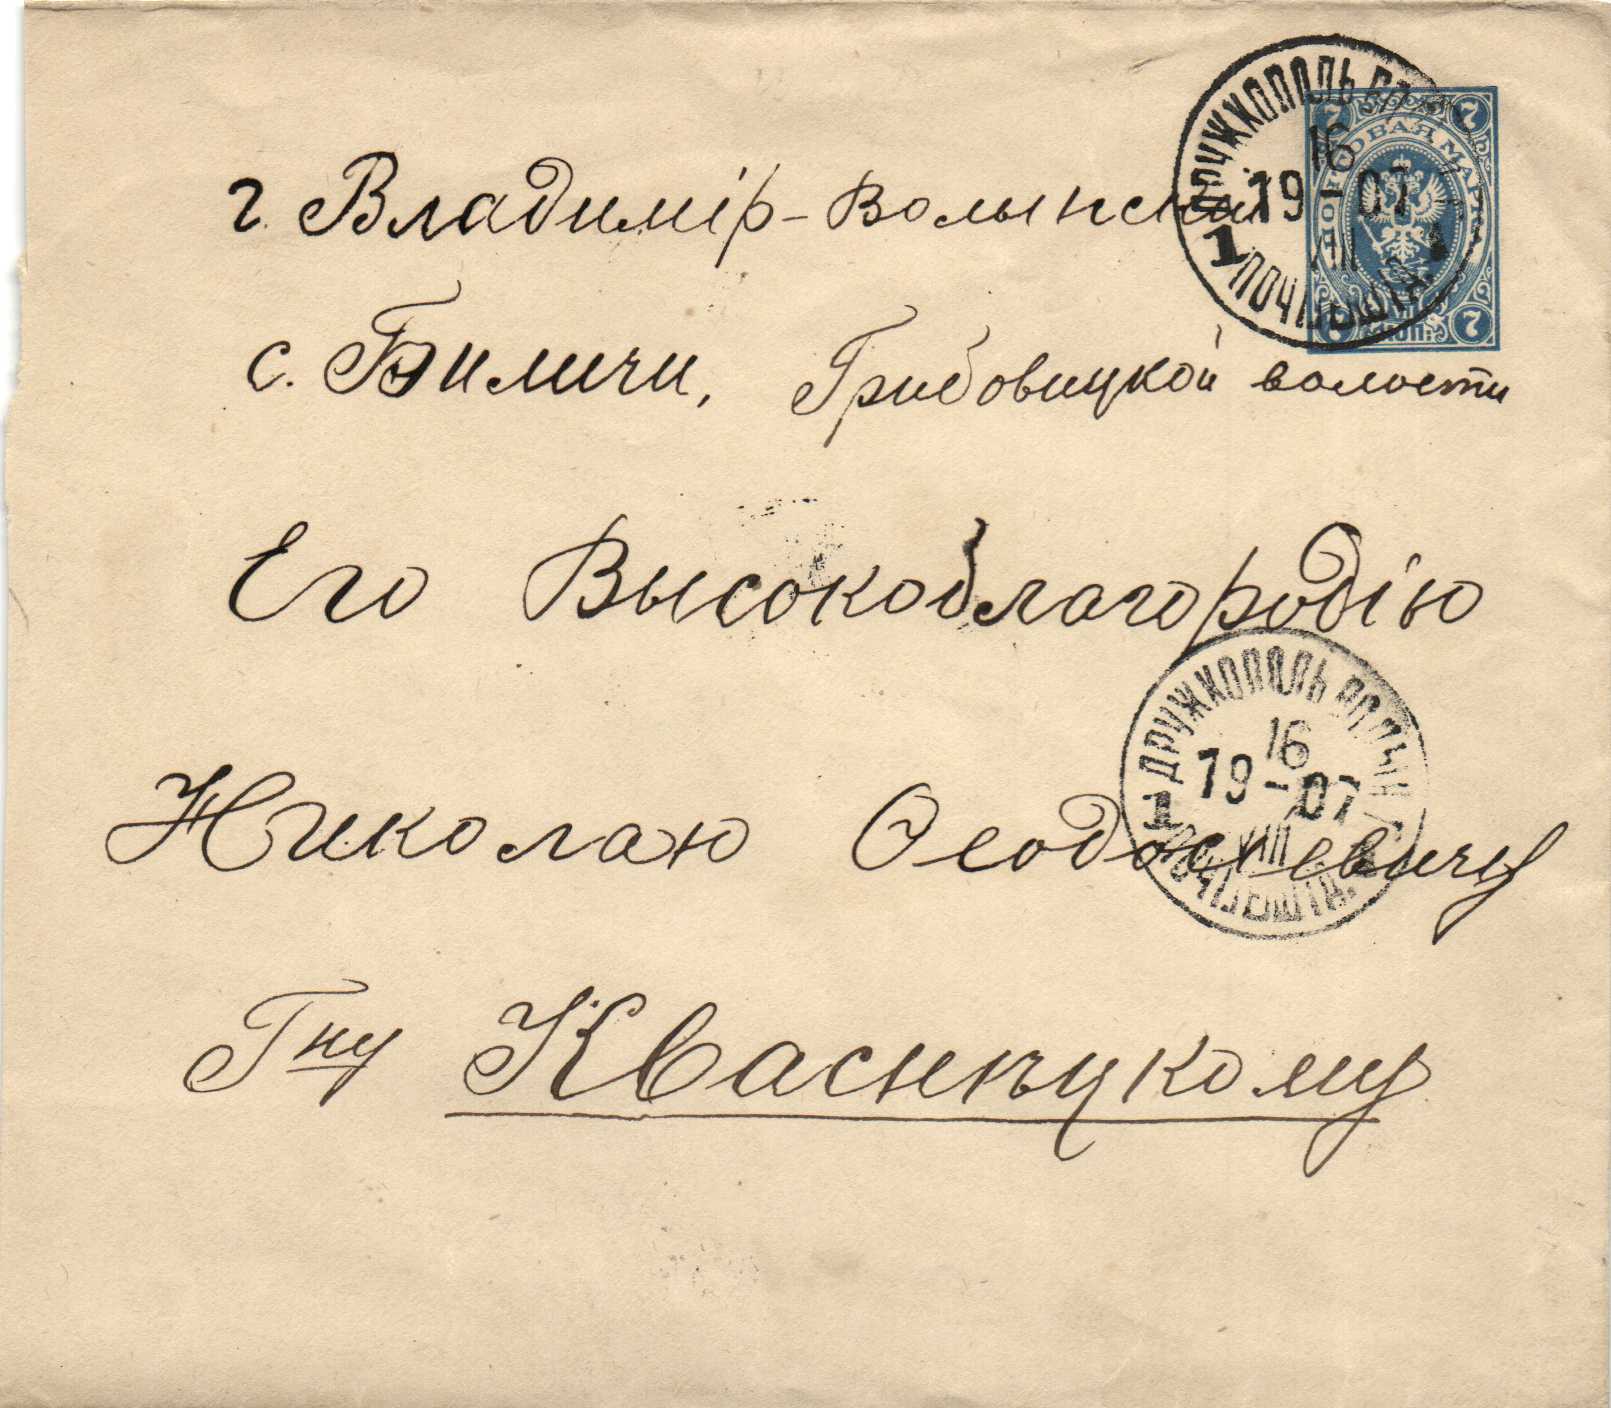 г. Владимір-Волынский
с. Биличи, Грибовицкой волости
Его Высокоблагородію
Николаю Ѳеодосіевичу
Гну Кваснецкому
ДРУЖКОПОЛЬ
16
19-07
VIII
1 1
ПОЧТ.
ПОЧТОВАЯ МАРКА
7 7
7 7
КОП.
ДРУЖКОПОЛЬ ВОЛЫН. Г.
16
19-07
VIII
1